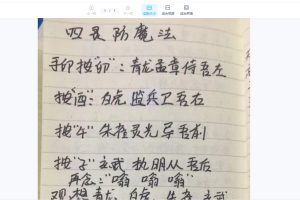 四灵防魔法
手印按"卯"：青龙孟章侍吾左
按"酉"：白虎监兵卫吾右
按"午"朱雀灵光导吾前
按"子"玄武执明从吾后
再念："嗡 嗡 嗡"
观想青龙、白虎、朱雀、玄武